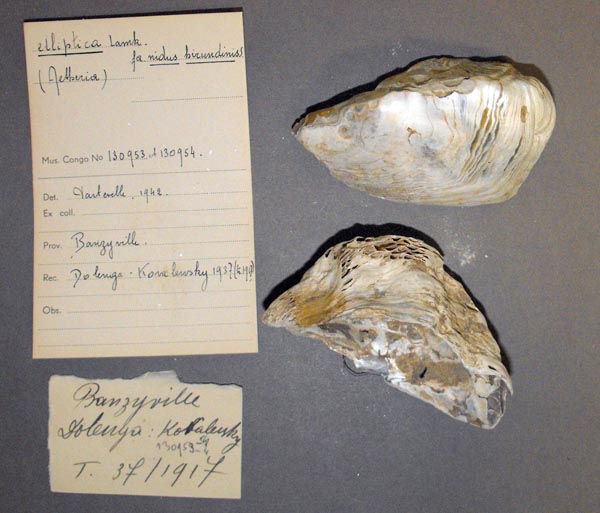 elliptica Lamk.
fa. nidus hirundinis
(Aetheria)
Mus. Congo No 130953 et 130954.
Det. Darteville, 1942.
Ex coll.
Prov. Banzyville.
Rec. Dolenga-Kovalewsky 1937
Obs.
Banzyville
Dolenga: Kovalewsky
130953-54
T. 37/1917